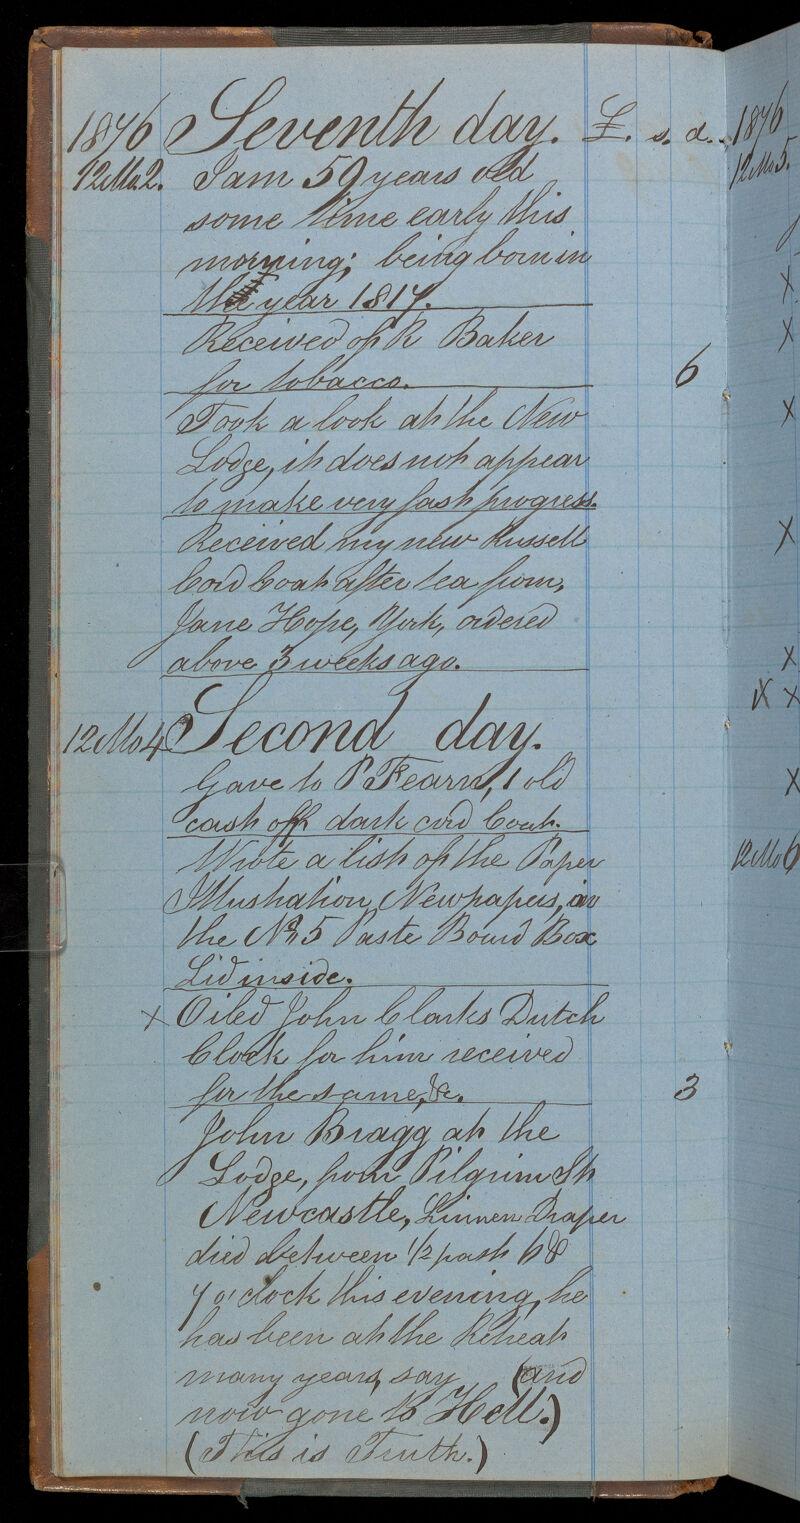 1876 Seventh day. £. s. d.
12 Mo. 2. I am 59 years old
some time early this
morning; being born in
the year 1817.
Received of R Baker
for tobacco. 6
Took a look at the New
Lodge, it does not appear
to make very fast progress.
Received my new Russell
Cord Coat after tea from,
Jane Hope, York, ordered
above 3 weeks ago.
12 Mo 4 Second day.
Gave to P Fearn, 1 old
cast off dark cord Coat.
Wrote a list of the Paper
Illustration Newpapers, in
the No 5 Paste Board Box
Lid inside.
x Oiled John Clarks Dutch
Clock for him received
for the same, &c. 3
John Bragg at the
Lodge, from Pilgrim St
Newcastle, Linnen Draper
died between 1/2 past 6 &
7 o'clock this evening, he
has been at the Retreat
many years, say (and
now gone to Hell.)
(This is Truth.)
1876
12 Mo 5.
x
x
x
x
x
x x
x
12 Mo 6